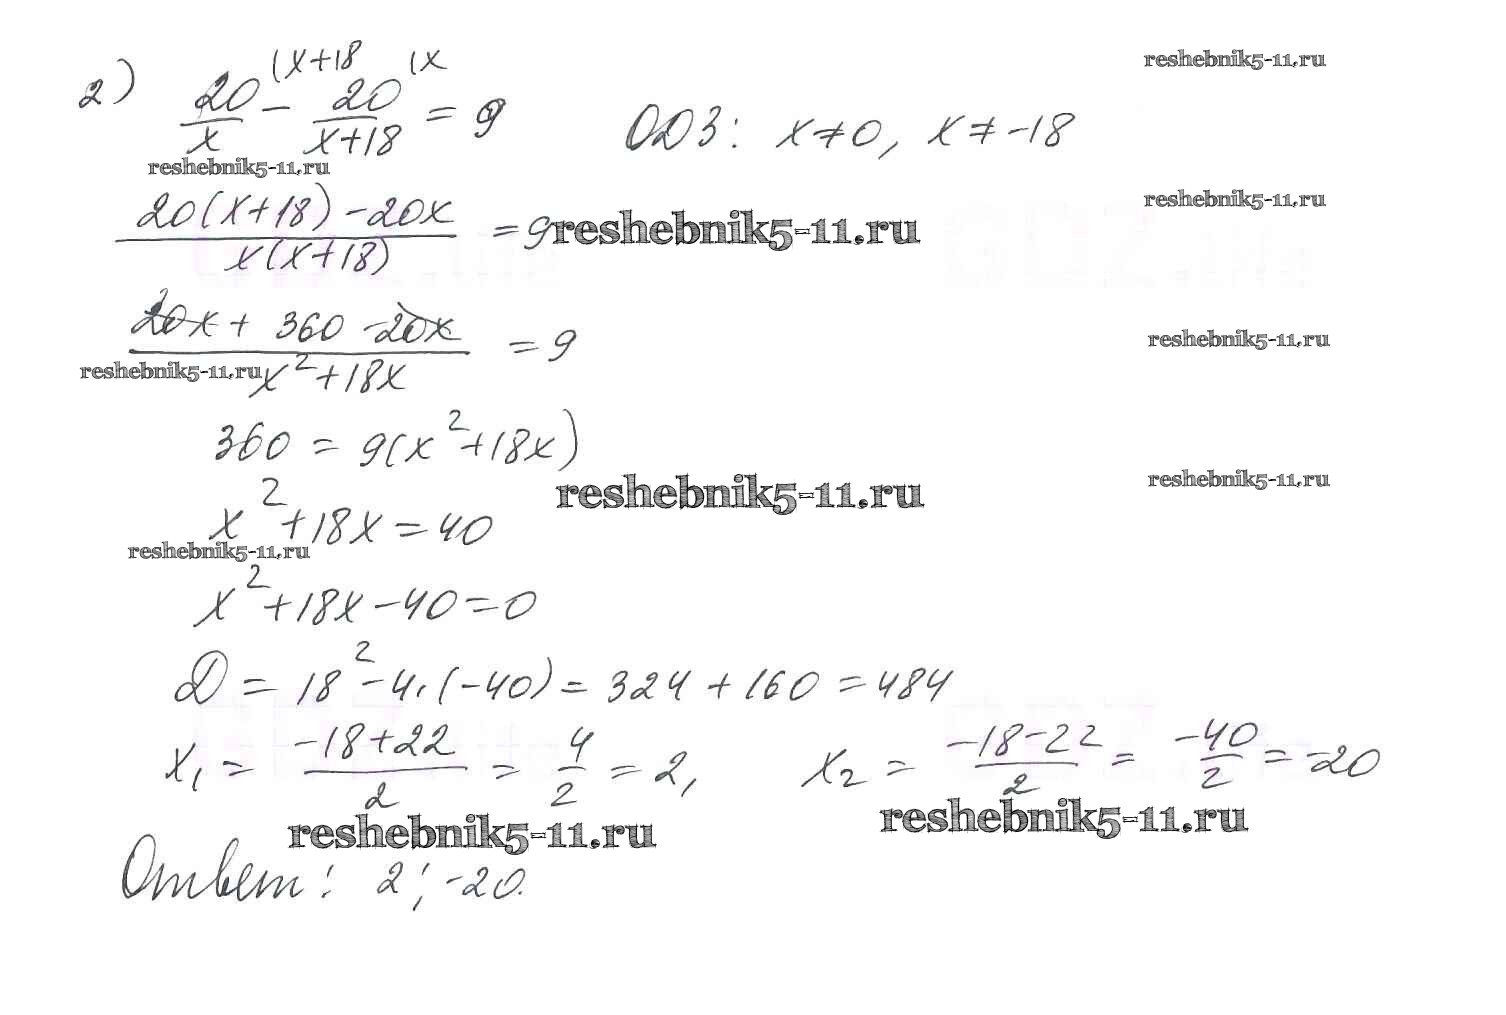 2) 20/x (x+18 − 20/(x+18) (x = 9 ОДЗ: x≠0, x≠-18
reshebnik5-11.ru
reshebnik5-11.ru
(20(x+18) - 20x)/(x(x+18)) = 9
reshebnik5-11.ru
reshebnik5-11.ru
(20x + 360 - 20x)/(x²+18x) = 9
reshebnik5-11.ru
reshebnik5-11.ru
360 = 9(x²+18x)
reshebnik5-11.ru
reshebnik5-11.ru
x²+18x=40
reshebnik5-11.ru
x²+18x-40=0
D = 18²-4·(-40) = 324+160=484
x₁ = (-18+22)/2 = 4/2 = 2, x₂ = (-18-22)/2 = -40/2 = -20
reshebnik5-11.ru
reshebnik5-11.ru
Ответ: 2; -20.